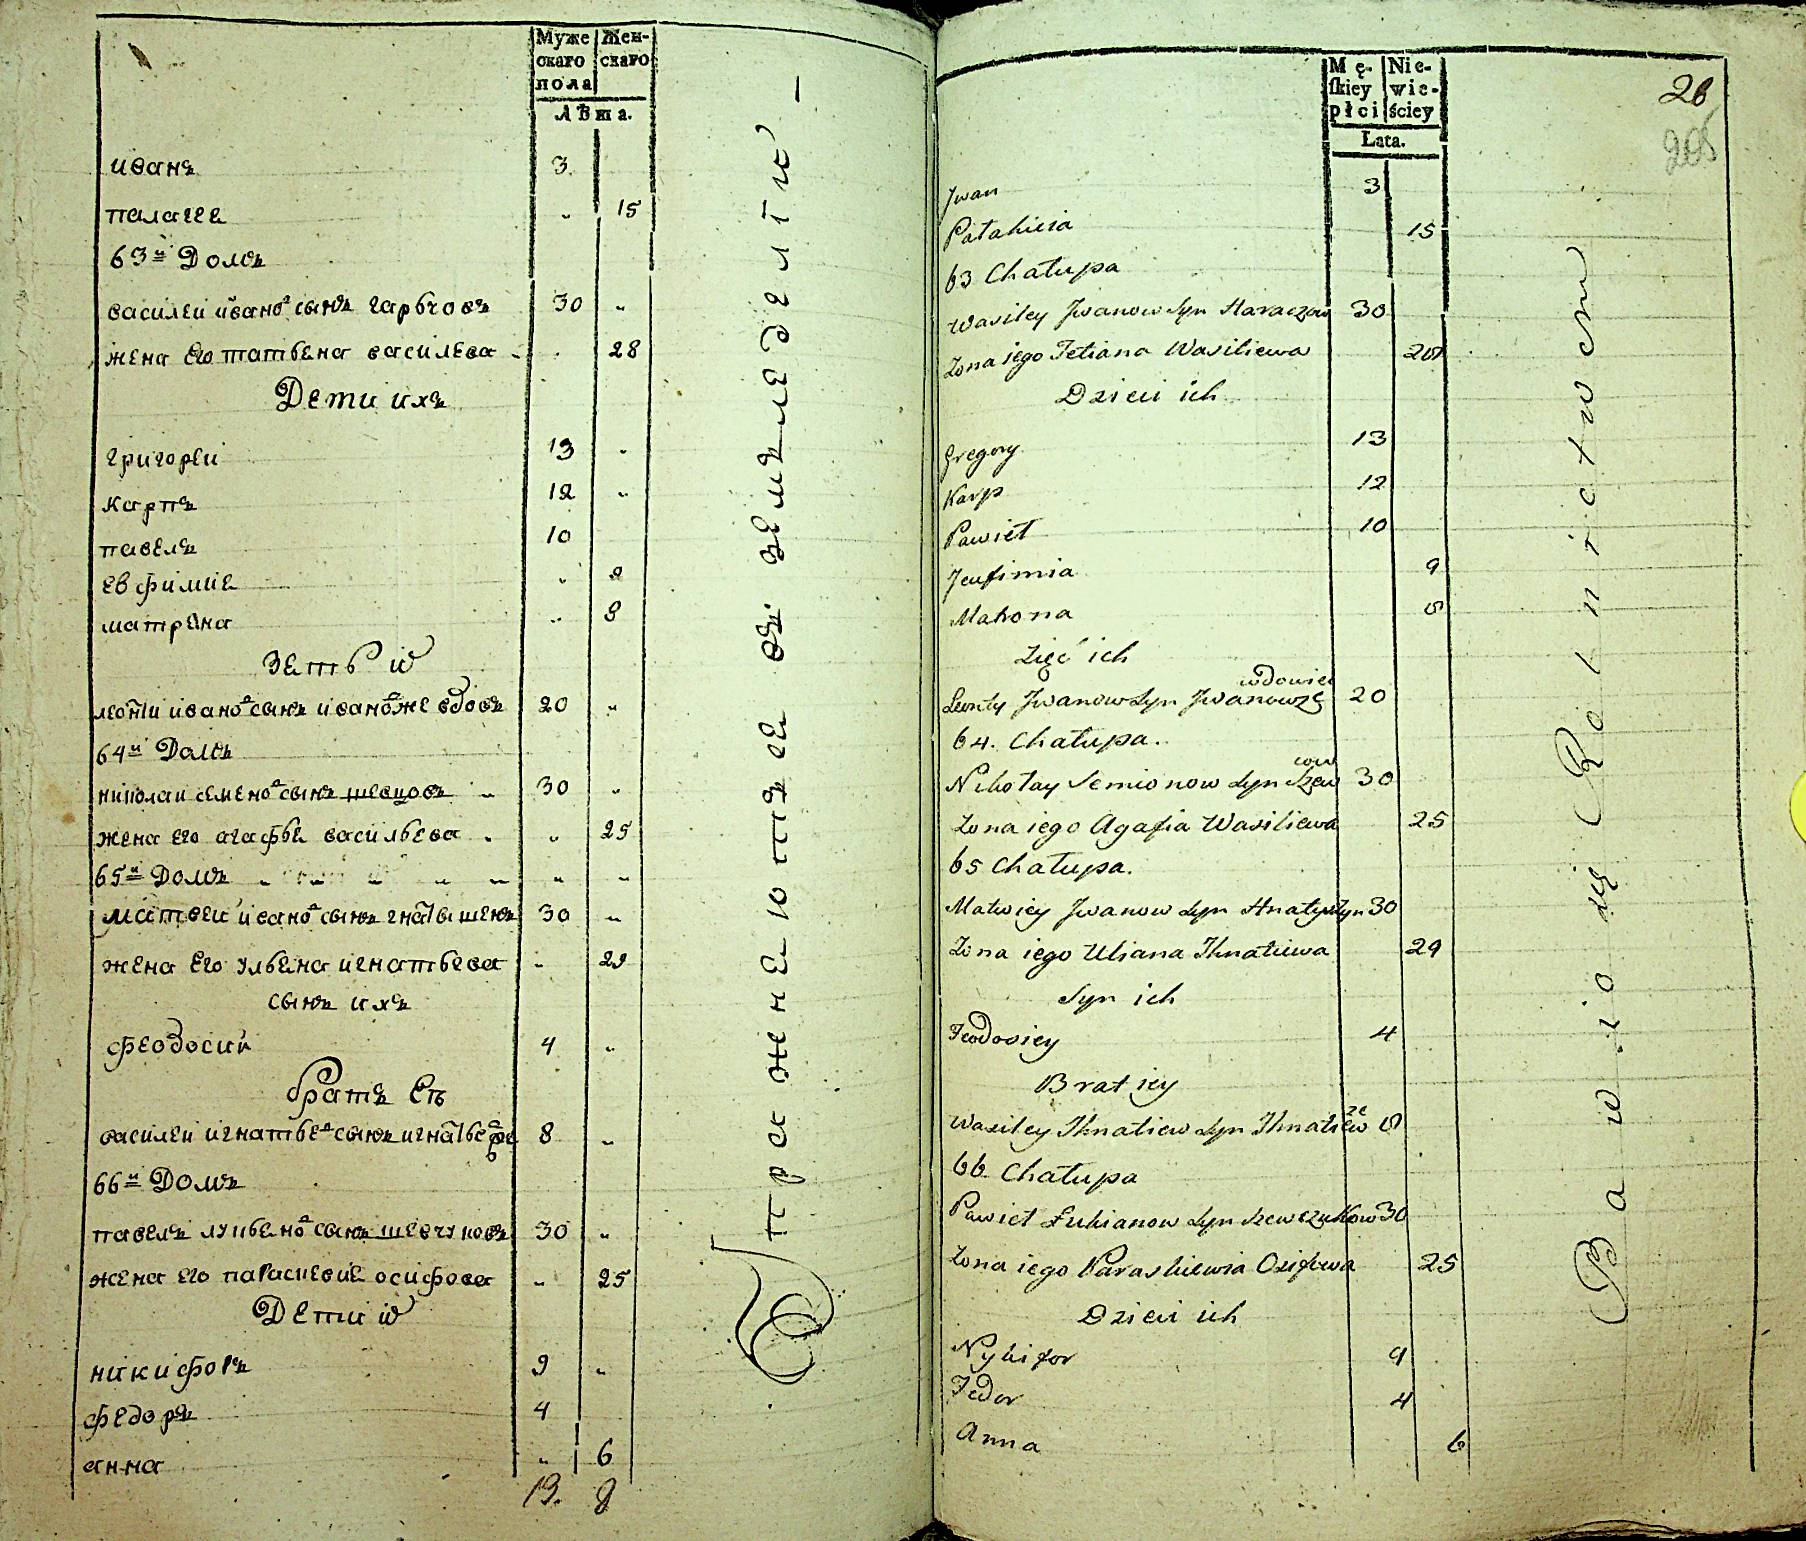 Муже Жен-
скаго скаго
пола
Лѣта.
иванъ 3
палагея „ 15
63й Домъ
василеи ивановъ сынъ гарьчовъ 30 „
жена его татьяна василева „ 28
Дети ихъ
григореи 13 „
карпъ 12 „
павелъ 10
евфимия „ 9
матрена „ 8
зеть их
леонти иванов сынъ иванов же вдовъ 20 „
64й Домъ
николаи семенов сынъ шевцовъ „ 30 „
жена его агафья васильева „ „ 25
65й Домъ „ „ „ „ „ „ „
матвеи иванов сынъ гнатышенъ 30 „
жена его ульяна игнатьева „ 29
сынъ ихъ
феодосий 4 „
братъ ея
василеи игнатьев сынъ игнатьев же 8 „
66й Домъ
павелъ лукьянов сынъ шевчуковъ 30 „
жена его параскевия осифова „ 25
Дети их
никифоръ 9 „
федоръ 4
анна „ 6
13. 8
Упражнеются въ земледелии —
Mę- Nie-
skiey wie-
płci ściey
Lata.
26
205
Jwan 3
Pałahieia 15
63 Chałupa
Wasiley Jwanow syn Haraczow 30
Żona iego Tetiana Wasiliewa 28
Dzieci ich
Gregory 13
Karp 12
Pawieł 10
Jeufimia 9
Matrona 8
Zięć ich
wdowiec
Leonty Jwanow syn Jwanowże 20
64. Chałupa.
cow
Nikołay Semionow syn Szew 30
Żona iego Agafia Wasiliewa 25
65 Chałupa.
Matwiey Jwanow syn Hnatyszyn 30
Żona iego Uliana Ihnatiewa 29
Syn ich
Feodosiey 4
Brat iey
że
Wasiley Ihnatiew syn Ihnatiew 8
66 Chałupa
Pawieł Łukianow syn Szewczukow 30
Żona iego Paraskiewia Osifowa 25
Dzieci ich
Nykifor 9
Fedor 4
Anna 6
Bawią się Rolnictwem